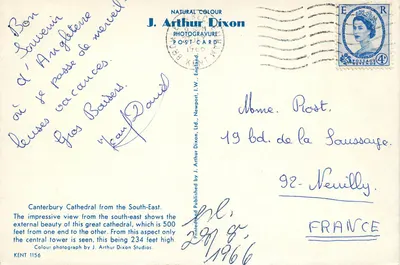 NATURAL COLOUR
J. Arthur Dixon
PHOTOGRAVURE
POST CARD
Bon
Souvenir
d'Angleterre
où je passe de merveil
leuses vacances.
Gros Baisers.
Jean Daniel
Canterbury Cathedral from the South-East.
The impressive view from the south-east shows the
external beauty of this great cathedral, which is 500
feet from one end to the other. From this aspect only
the central tower is seen, this being 234 feet high
Colour photograph by J. Arthur Dixon Studios.
KENT 1156
Published by J. Arthur Dixon Ltd., Newport, I.W., England
E R
4D
Mme. Prost.
19 bd. de la Saussaye.
92-Neuilly.
FRANCE
1966